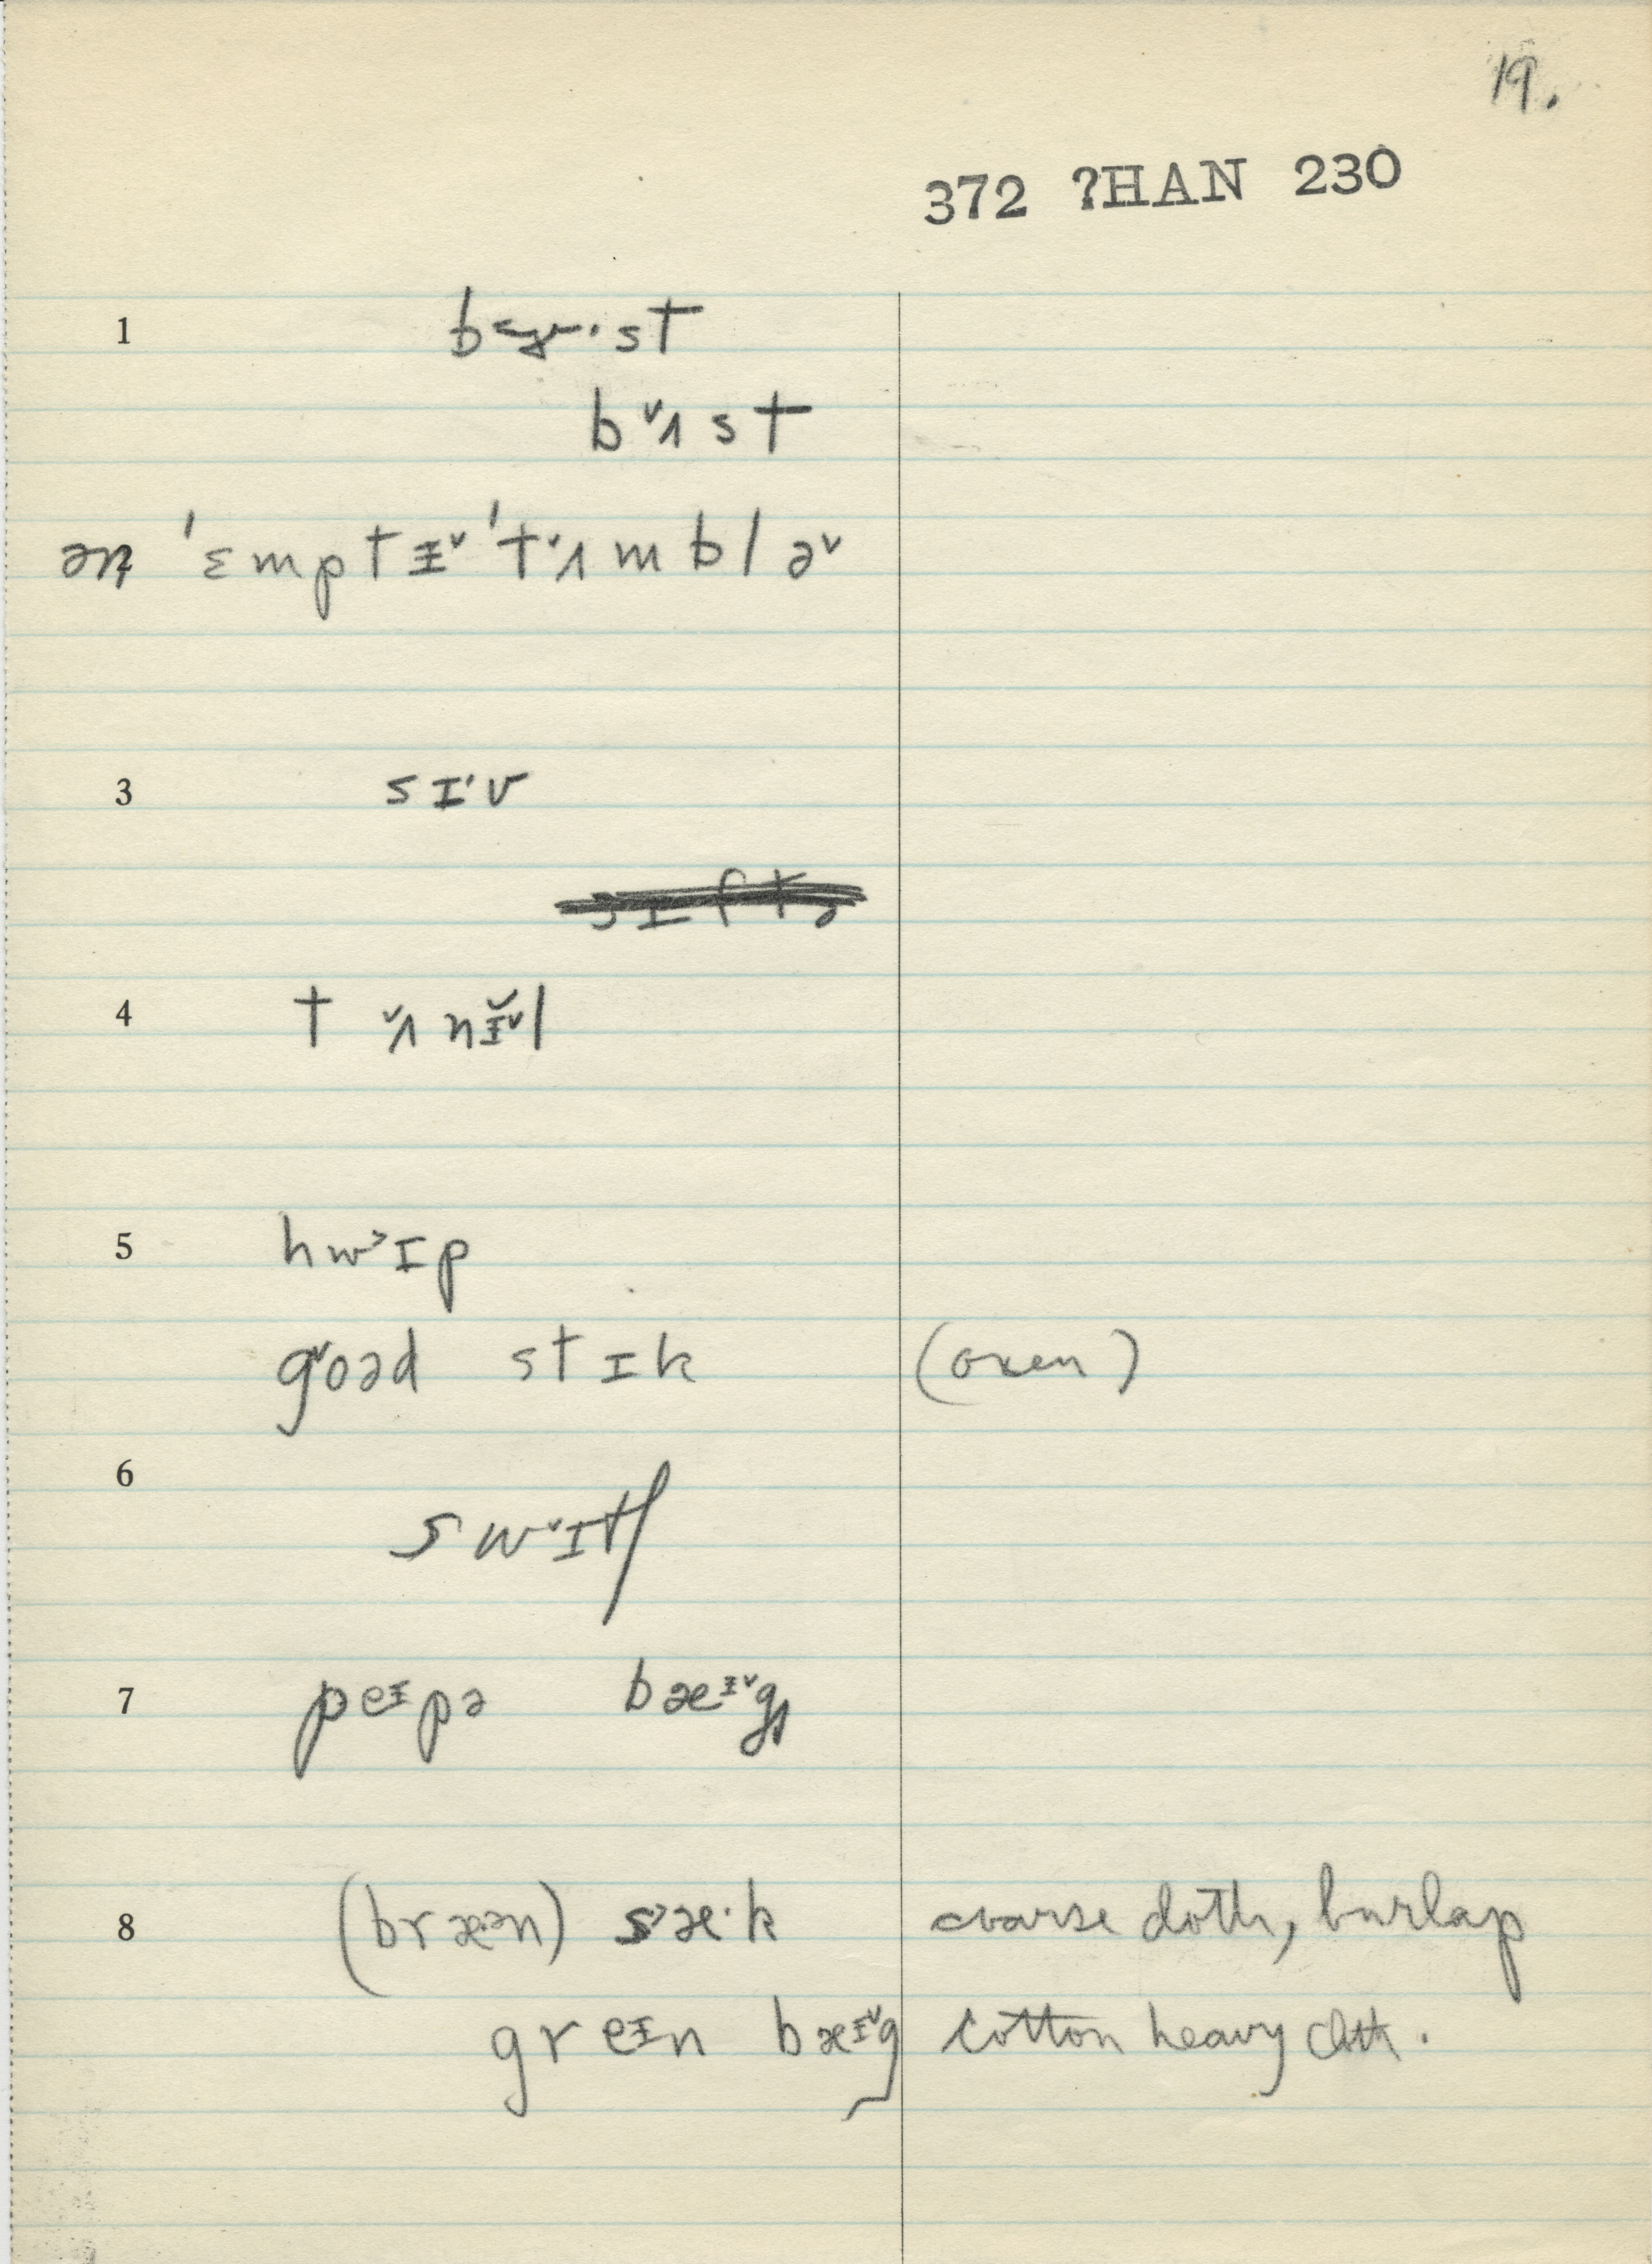 19.
372 ?HAN 230
1
bʌ˅st
ən 'ɛmptɨ˅ 't˅ʌmblə˅
3 sɪ'v
4 t ˅ʌnɨ̆˅l
5 hw˃ɪp
g˅oəd stɪk (oxen)
6
sw˅ɪtʃ
7 peɨpə bæɨ˅g
8 (bræən) s˃æ·k coarse cloth, burlap
greɨn bæɨ˅g cotton heavy cloth.